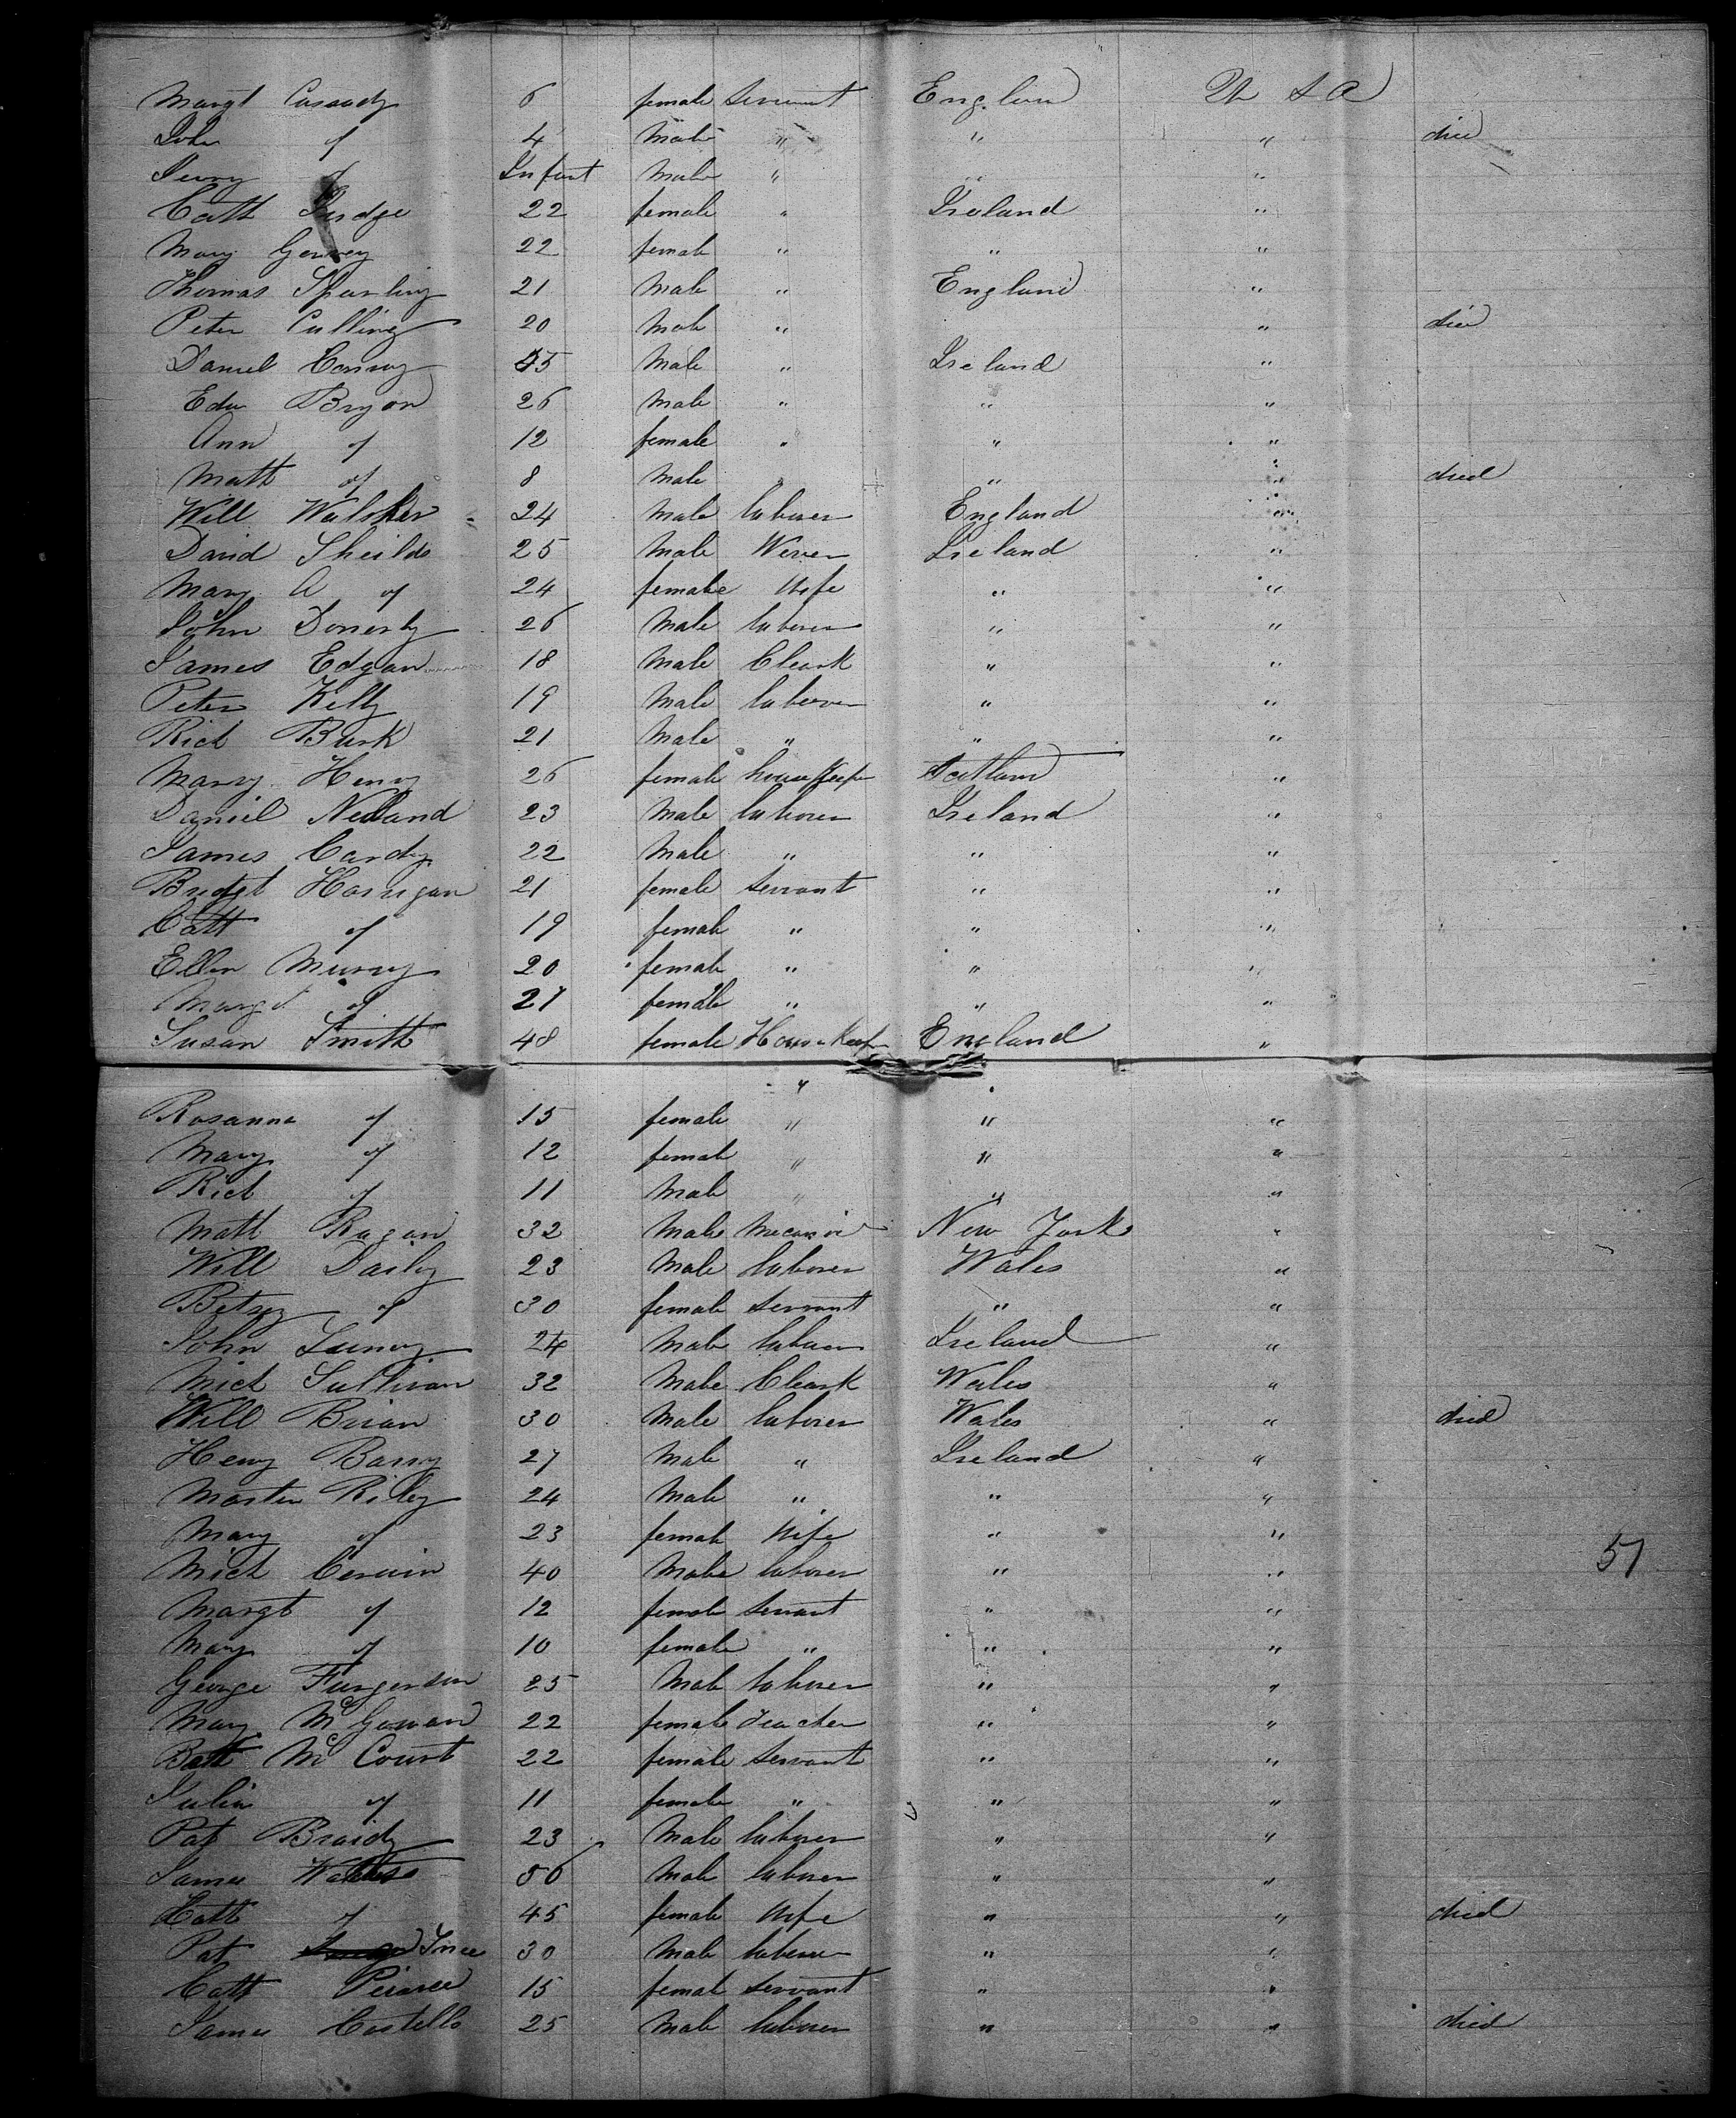 Margt Cassady 6 female Servant England U S A
John " 4 Male " " " died
" Infant Male " " "
Cath Judge 22 female " Ireland "
Mary 22 female " " "
Thomas Sparling 21 Male " England "
Peter Culling 20 Male " " died
Daniel Conway 45 Male " Ireland "
Edw Bryan 26 Male " " "
Ann " 12 female " " "
Matt " 8 Male " " " died
Will Walsher 24 Male laborer England "
David Sheilds 25 Male Wever Ireland "
Mary A " 24 female Wife " "
John Donerly 26 Male laborer " "
James Edgan 18 Male Cleark " "
Peter Kelly 19 Male laborer " "
Rich Burk 21 Male " " "
Mary Henry 26 female houseKeep Scotland "
Daniel Neeland 23 Male laborer Ireland "
James Cardy 22 Male " " "
Bridget Harrigan 21 female Servant " "
Cath " 19 female " " "
Ellen Murray 20 female " " "
Margt " 21 female " " "
Susan Smith 48 female HouseKeep England "
" "
Rosanna " 15 female " " "
Mary " 12 female " " "
Rich " 11 Male " " "
Matt Ragan 32 Male New York "
Will Dailey 23 Male laborer Wales "
Betsey " 30 female Servant " "
John 24 Male laborer Ireland "
Mich Sullivan 32 Male Cleark Wales "
Will Brian 30 Male laborer Wales " died
Henry Barry 27 Male " Ireland "
Marten Riley 24 Male " " "
Mary " 23 female Wife " "
Mich Cerwin 40 Male laborer " " 51
Margt " 12 female Servant " "
Mary " 10 female " " "
George Furgerson 25 Male laborer " "
Mary McGowan 22 female Teacher " "
McCourt 22 female Servant " "
Julia " 11 female " " "
Pat Braidy 23 Male laborer " "
James 56 Male laborer " "
Cath " 45 female Wife " " died
Pat 30 Male laborer " "
Cath Pearce 15 female Servant " "
James Costello 25 Male laborer " " died